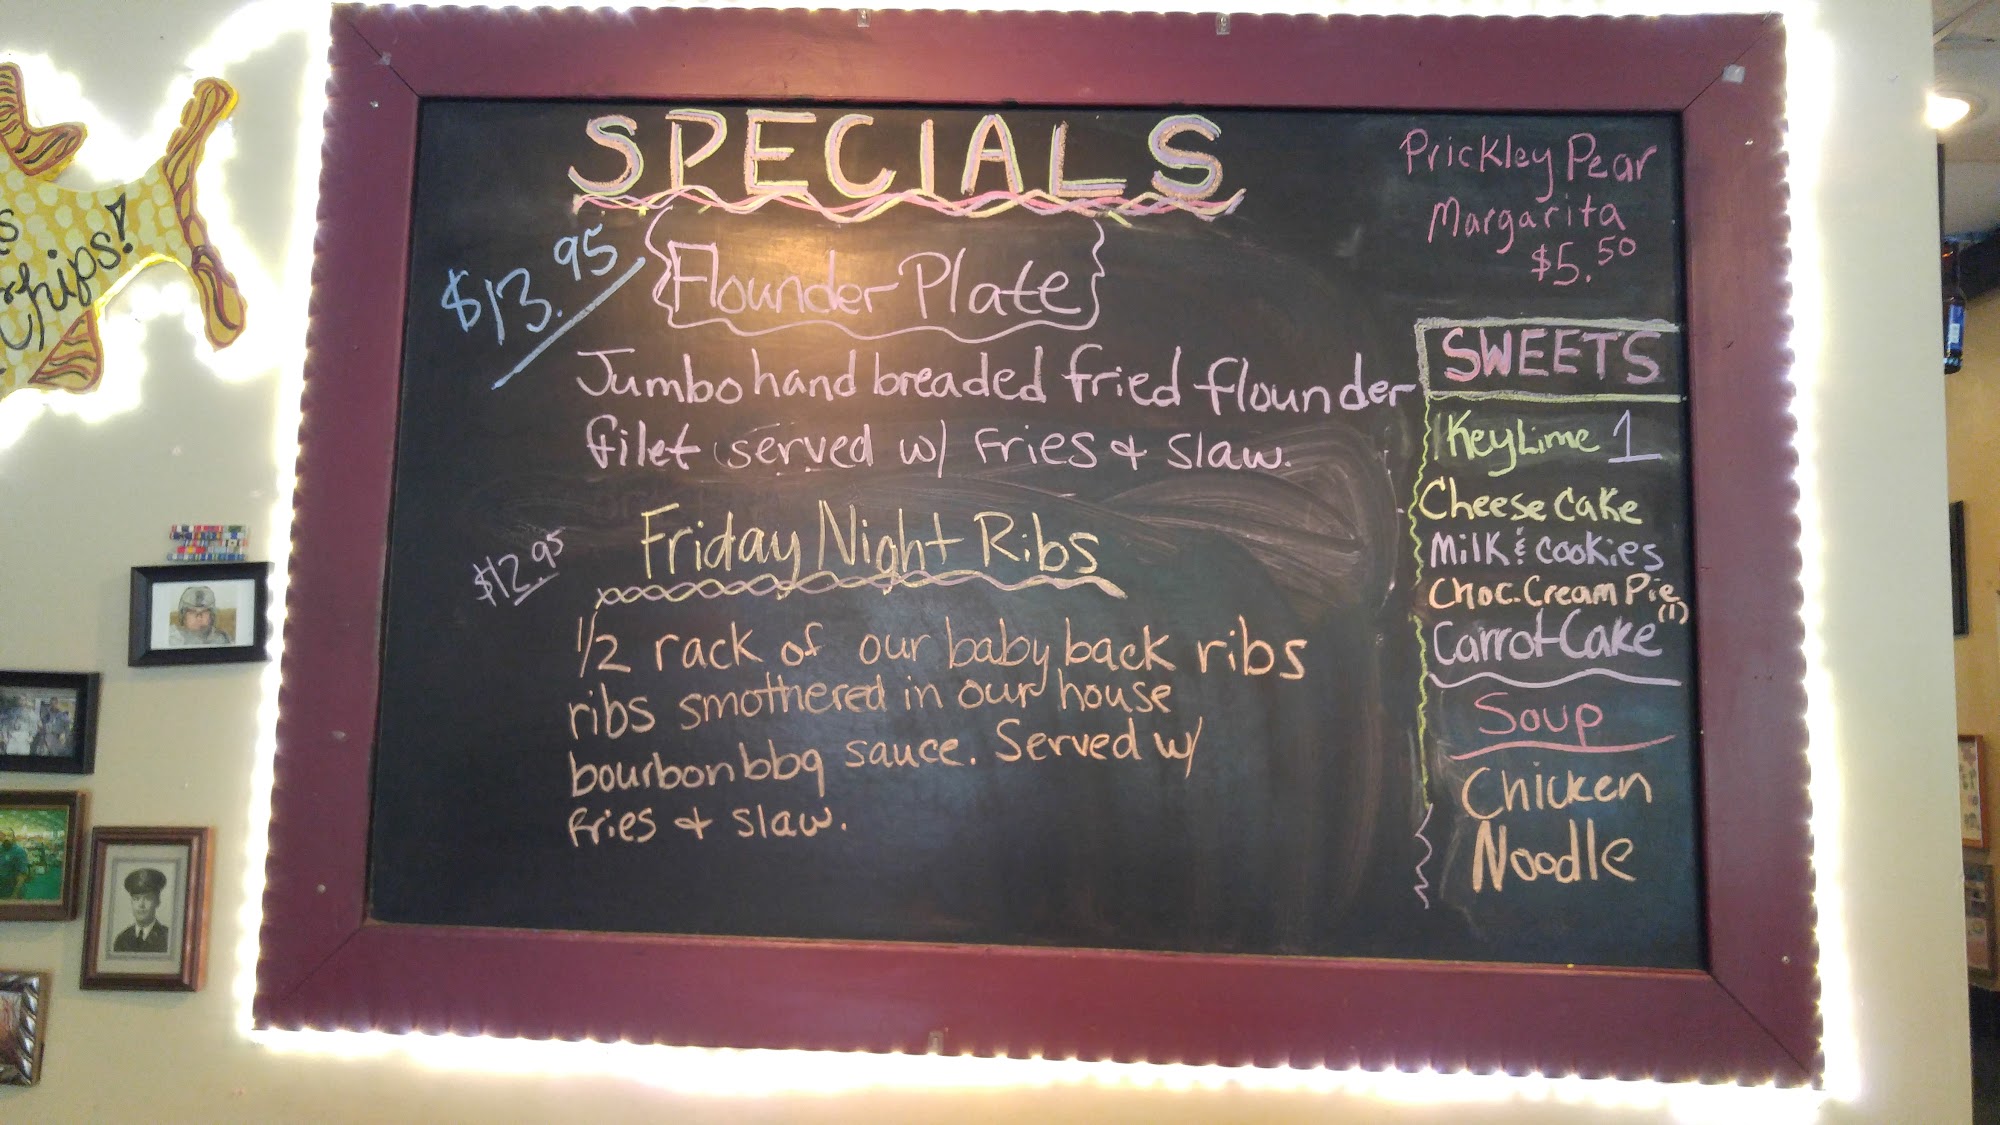 SPECIALS
$13.95
Flounder Plate
Jumbo hand breaded fried flounder
filet served w/ Fries & Slaw.
$12.95
Friday Night Ribs
1/2 rack of our baby back ribs
ribs smothered in our house
bourbon bbq sauce. Served w/
fries & slaw.
Prickley Pear
Margarita
$5.50
SWEETS
Key Lime 1
Cheese Cake
Milk & cookies
Choc. Cream Pie
(1)
Carrot Cake
Soup
Chicken
Noodle
chips!